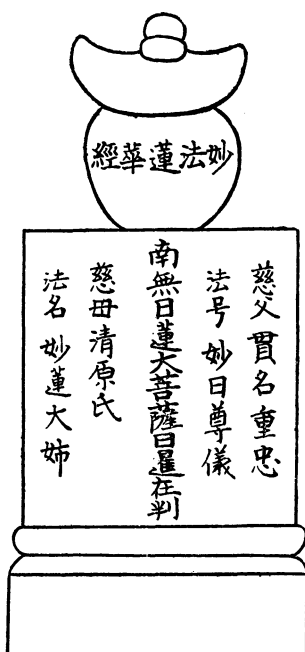 妙法蓮華經
慈父貫名重忠
法号妙日尊儀
南無日蓮大菩薩日暹在判
慈母清原氏
法名妙蓮大姉